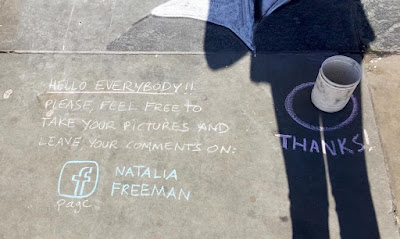 HELLO EVERYBODY!!
PLEASE, FEEL FREE to
TAKE YOUR PICTURES AND
LEAVE YOUR COMMENTS ON:
f
page
NATALIA
FREEMAN
THANKS.